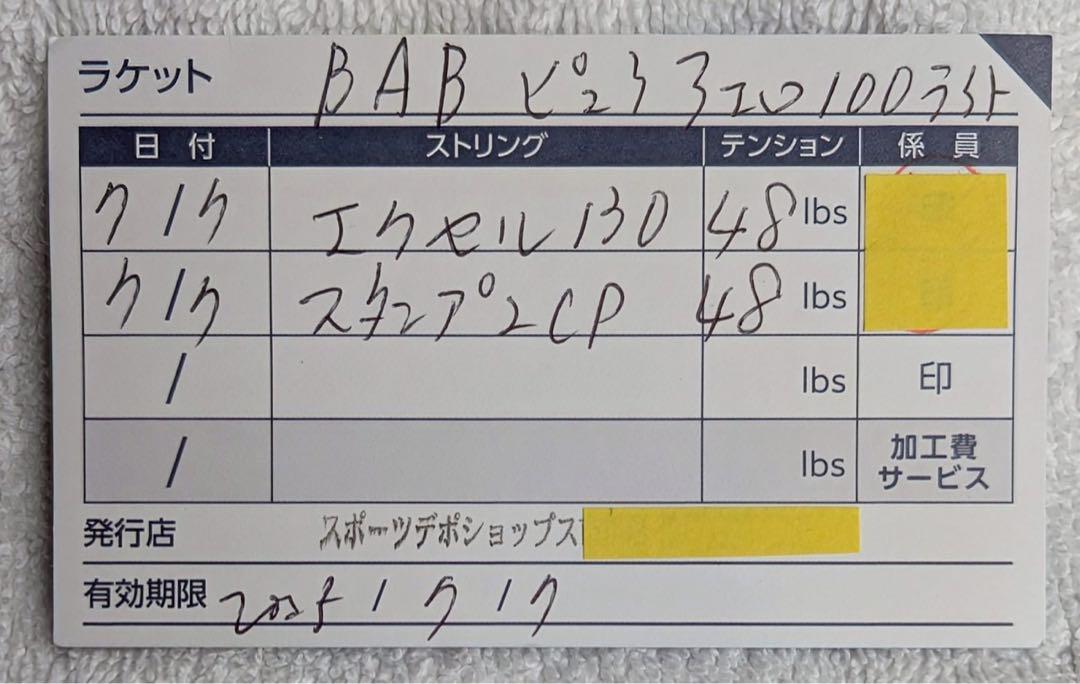 ラケット BAB ピュアアエロ100ライト
日付 ストリング テンション 係員
7/7 エクセル130 48 lbs
7/7 スタンプ2CP 48 lbs
/ lbs 印
/ lbs 加工費
サービス
発行店 スポーツデポショップス
有効期限 2025/7/7